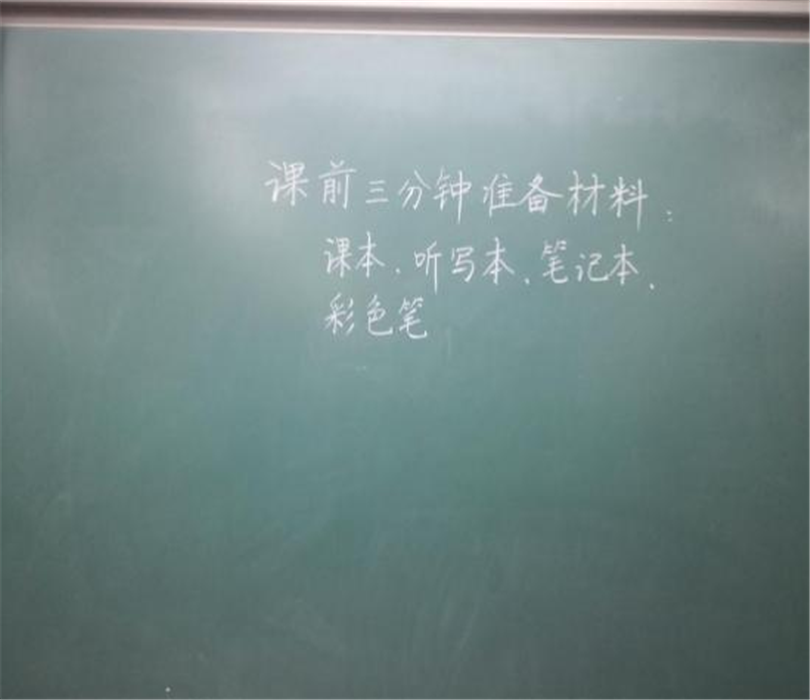 课前三分钟准备材料：
课本、听写本、笔记本、
彩色笔